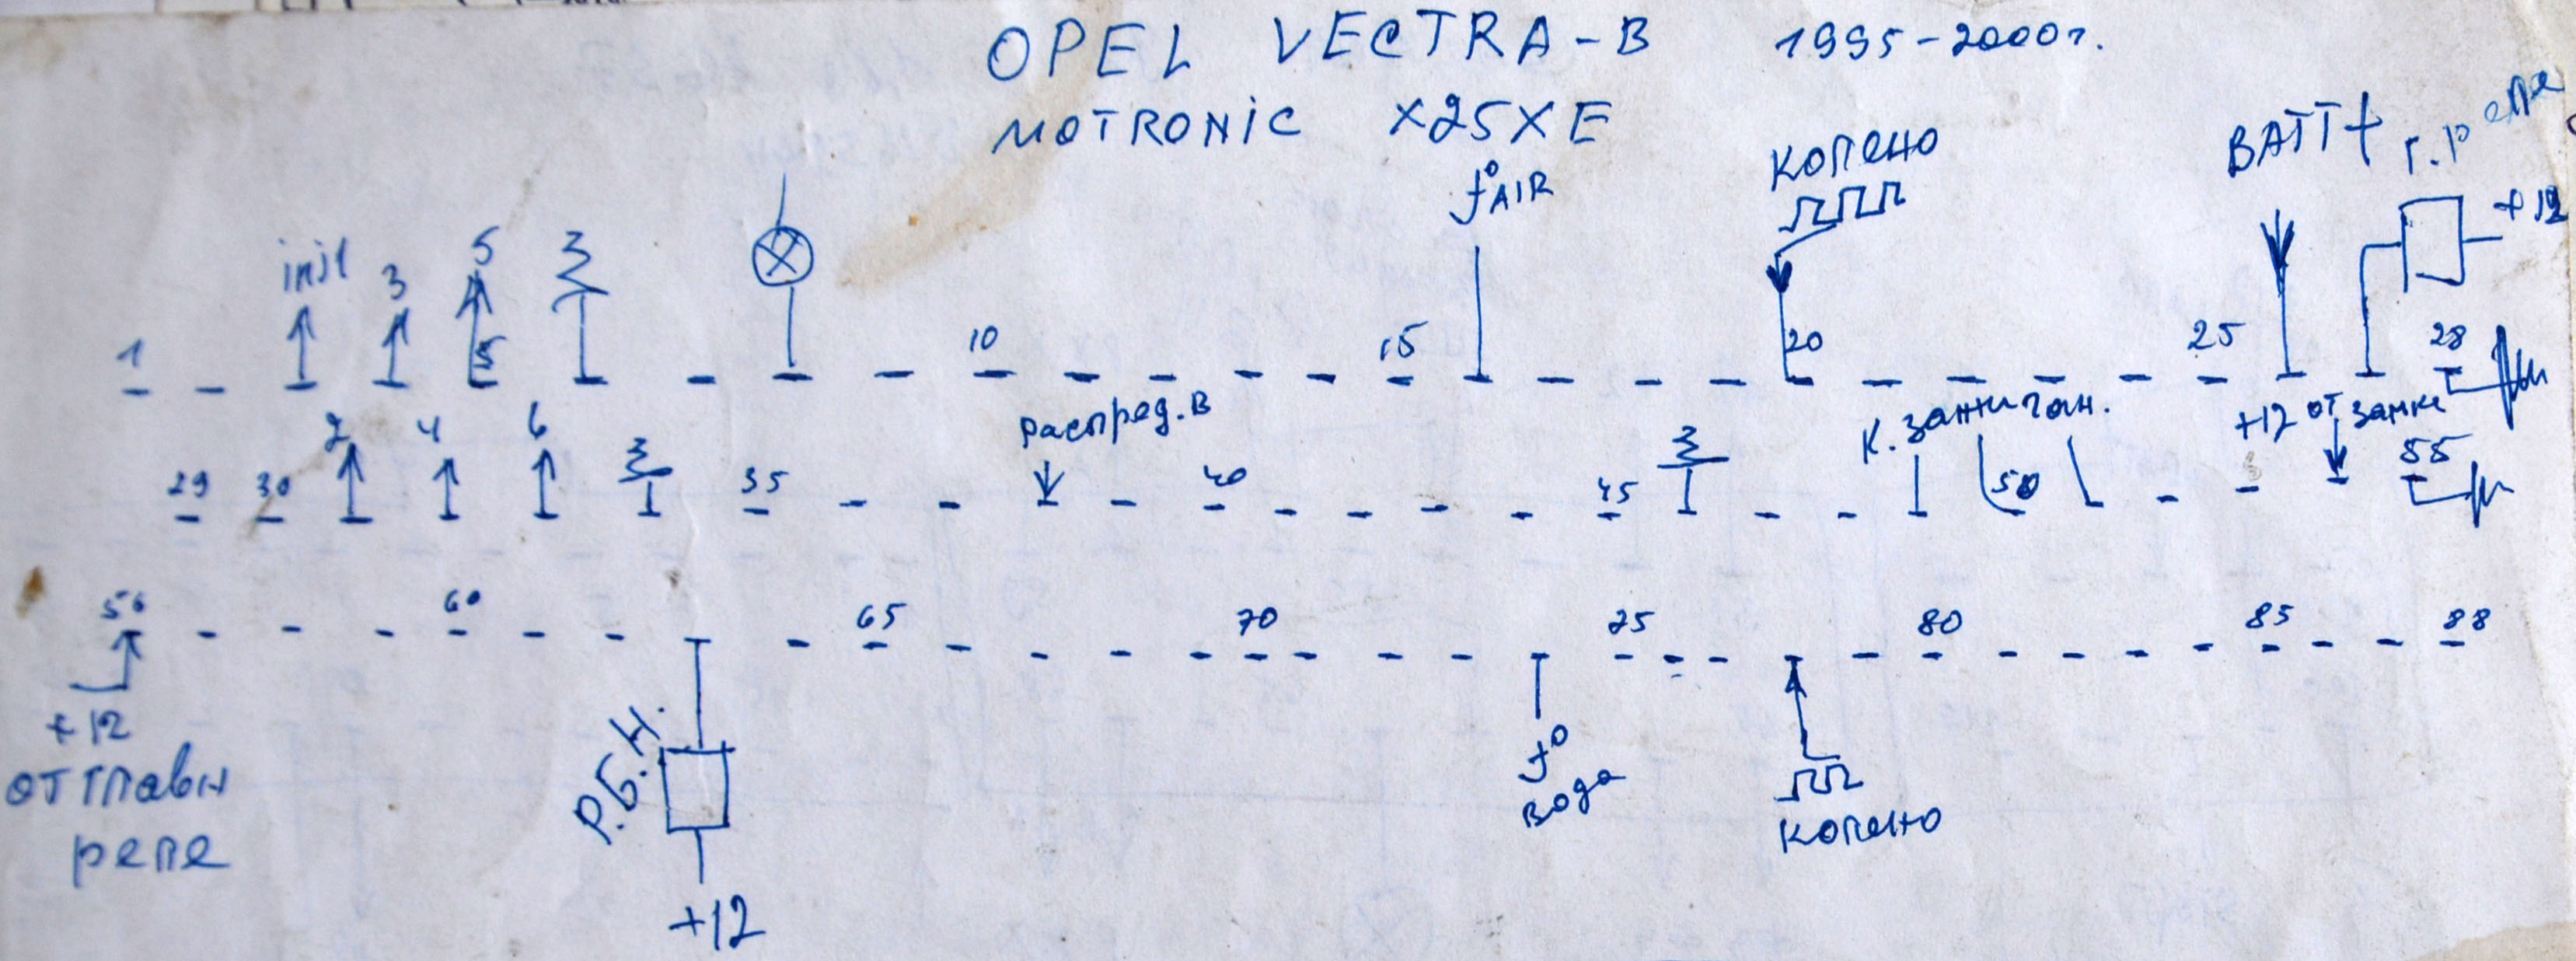 OPEL VECTRA-B 1995-2000г.
MOTRONIC X25XE
inj1 3 5
t° AIR
КОЛЕНО
BATT+ Г.Реле
+12
1 5 10 15 20 25 28
2 4 6
Распред.В
К. Зажиган.
+12 от замка
29 30 35 40 45 50 55
56 60 65 70 75 80 85 88
+12
от главн
реле
Р.Б.Н.
+12
t°
вода
колено